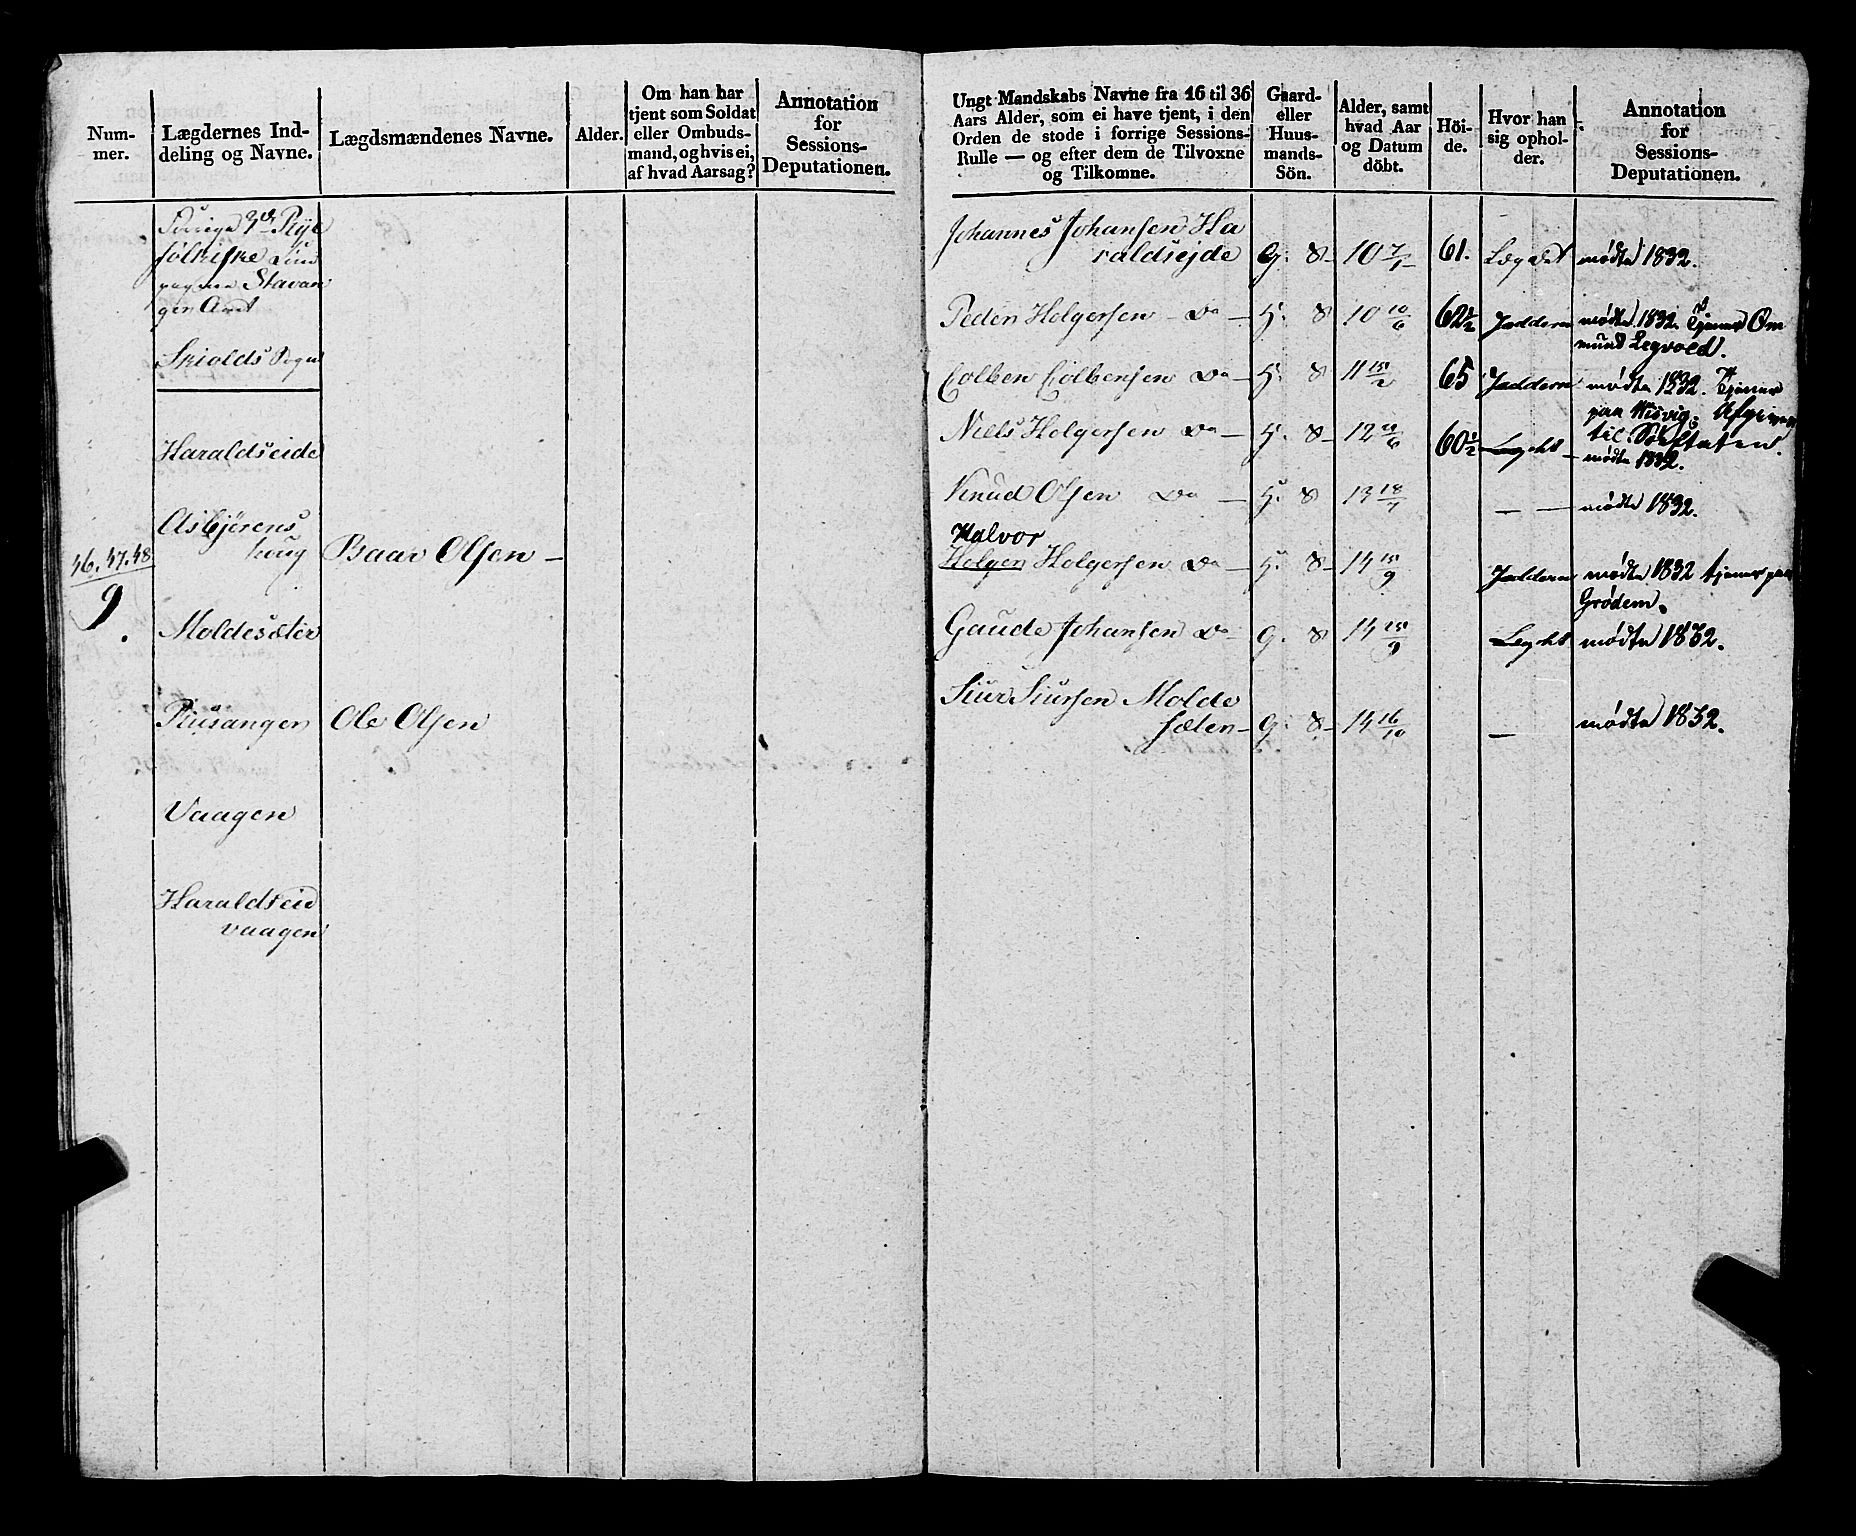 Num-
mer.
Lægdernes Ind-
deling og Navne.
Lægdsmændenes Navne.
Alder.
Om han har
tjent som Soldat
eller Ombuds-
mand, og hvis ei,
af hvad Aarsag?
Annotation
for
Sessions-
Deputationen.
3die Rye
fölkiske
Stavan
ger Amt
Skiolds Sogn
Haraldseide
Asbjørens
houg
46. 47. 48
9.
Baar Olsen —
Moldesæter
Riusanger
Ole Olsen
Vaagen
Haraldseid
vaagen
Ungt Mandskabs Navne fra 16 til 36
Aars Alder, som ei have tjent, i den
Orden de stode i forrige Sessions-
Rulle — og efter dem de Tilvoxne
og Tilkomne.
Gaard-
eller
Huus-
mands-
Sön.
Alder, samt
hvad Aar
og Datum
döbt.
Höi-
de.
Hvor han
sig ophol-
der.
Annotation
for
Sessions-
Deputationen.
Johannes Johansen Ha
raldsejde G. S— 10 7/1 61. Lægdet mødte 1832.
Peder Holgersen — Do — H. S 10 10/6 62 1/2 Jadderen mødte 1832. Tjener Om
mund
Colben Colbensen Do — H. S 11 15/2 65 Jadderen mødte 1832. Tjener
paa Afgiven
Niels Holgersen Do — H. S— 12 60 1/2 Legdet — til Søeftaten.
mødte 1832.
Knud Olsen Do — H. S 13 18/7 — — mødte 1832.
Halvor
Holgen Holgersen Do — H. S— 14 15/9 Jadderen mødte 1832 tjener paa
Grødem.
Gaude Johansen Do — G. S 14 15/9 Legdet mødte 1832.
Siur Siursen Molde
sæter — G. S— 14 16/10 — mødte 1832.